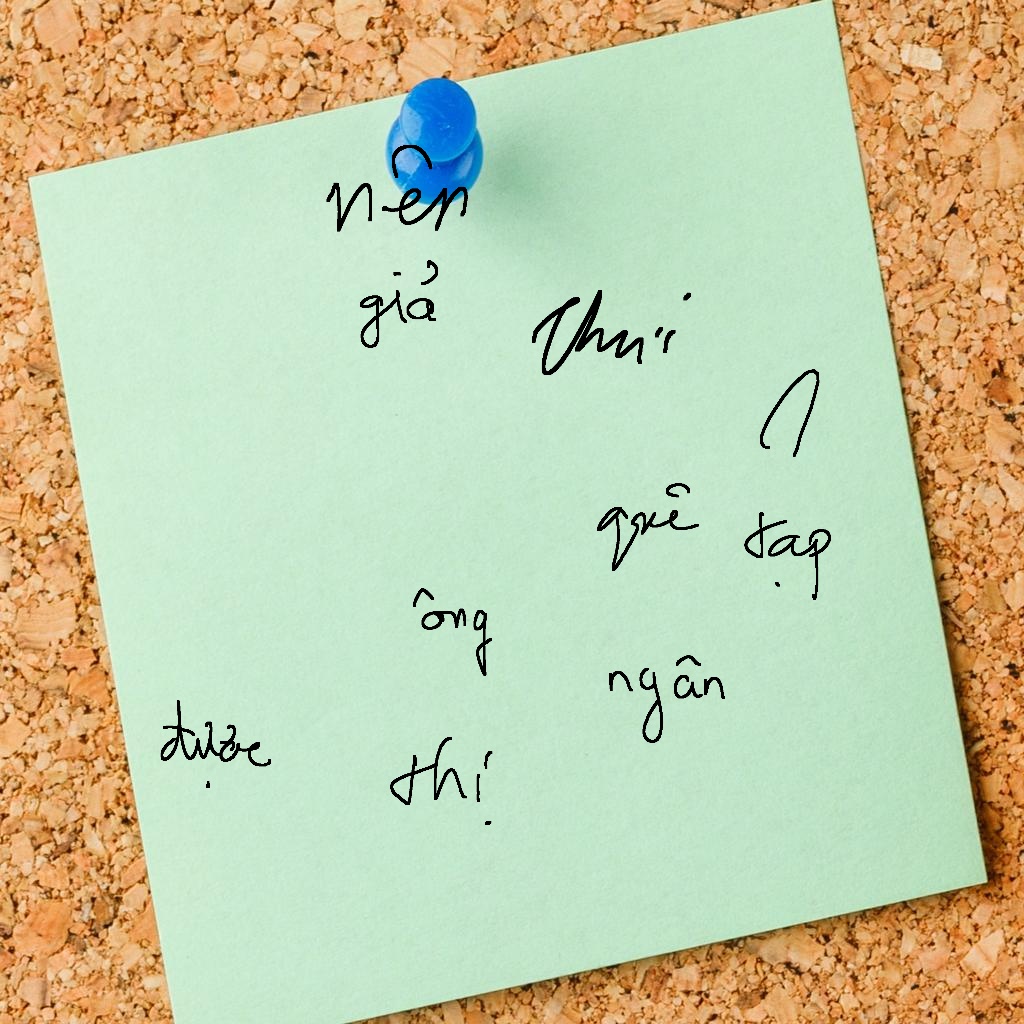 nên
giả
quê đạp
ông
ngân
được
thị